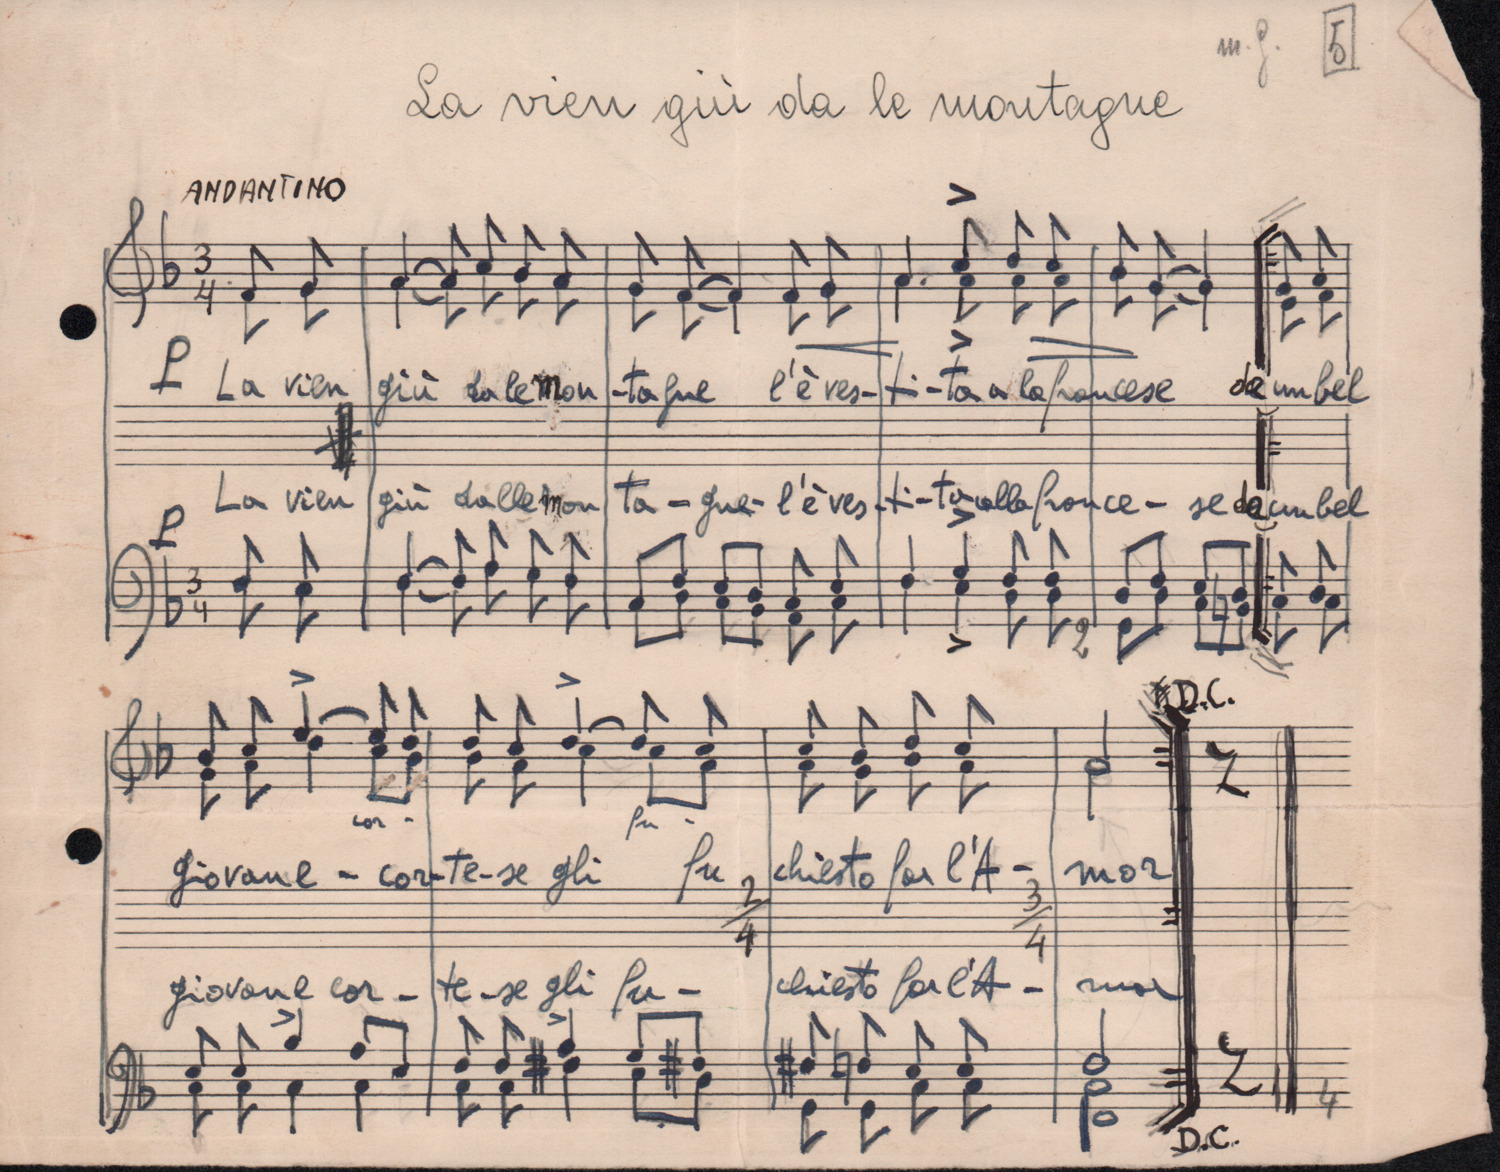 m.f. 5
La vien giù da le montagne
ANDANTINO
3
4
P La vien giù da le mon - tagne l'è ves - ti - ta a la francese de un bel
P La vien giù dalle mon ta - gne - l'è ves - ti - ta alla france - se de un bel
3
4
2
D.C.
cor - fu -
giovane - cor - te - se gli fu chiesto far l'A - mor
2/4 3/4
giovane cor - te - se gli fu - chiesto far l'A - mor
4
D.C.